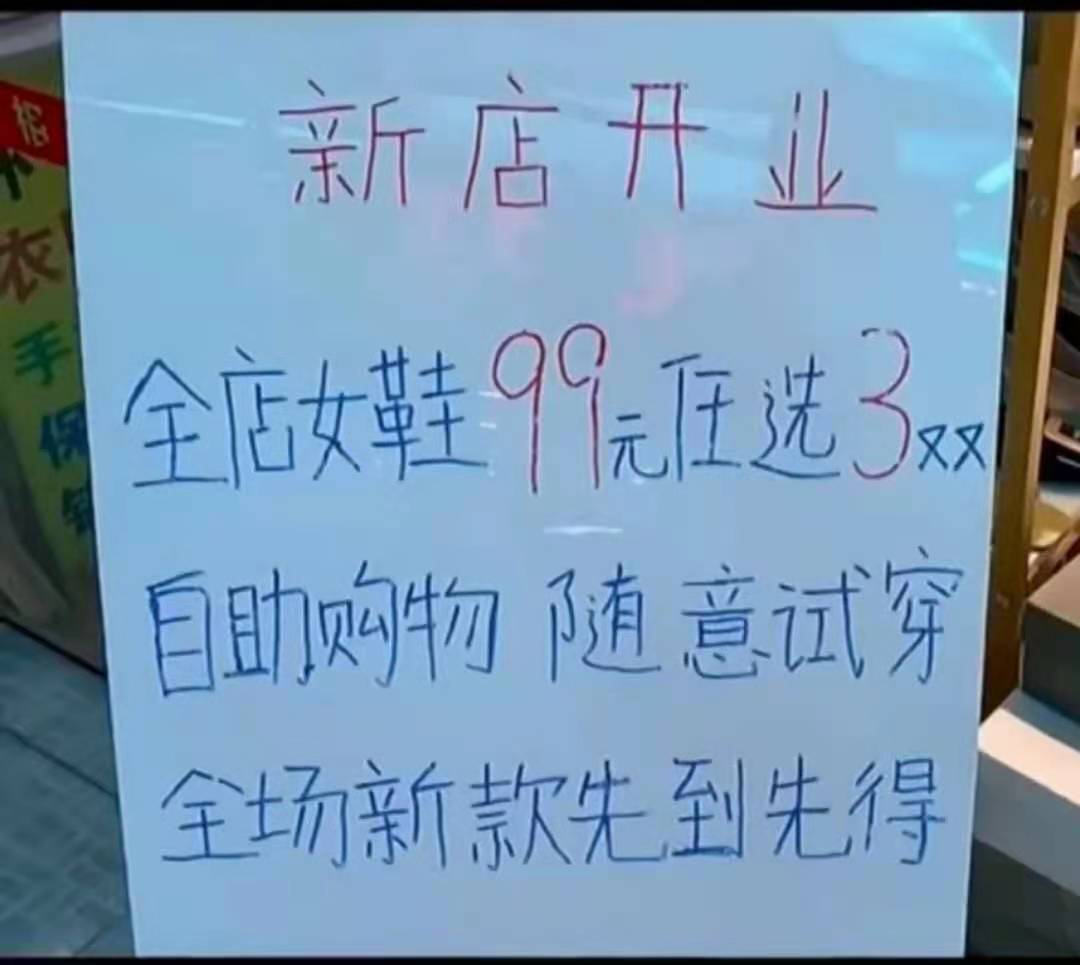 新店开业
全店女鞋99元任选3双
自助购物 随意试穿
全场新款先到先得
衣
手
保